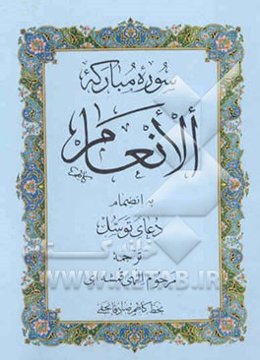 سورهٔ مبارکه
الأنعام
به انضمام
دعای توسل
ترجمه
مرحوم الهی قمشه‌ای
بخط
WWW.KETAB.IR